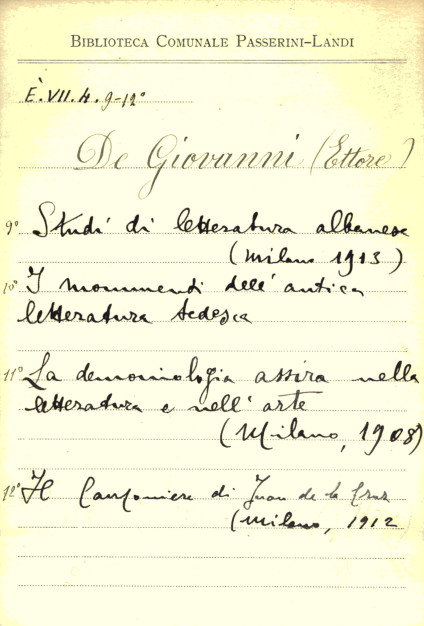 BIBLIOTECA COMUNALE PASSERINI-LANDI
E.VII.4. 9-12°
De Giovanni (Ettore)
9° Studi di letteratura albanese
(Milano 1913)
10° I monumenti dell'antica
letteratura tedesca
11° La demonologia assira nella
letteratura e nell'arte
(Milano, 1908)
12° Il Canzoniere di Juan de la Cruz
(Milano, 1912